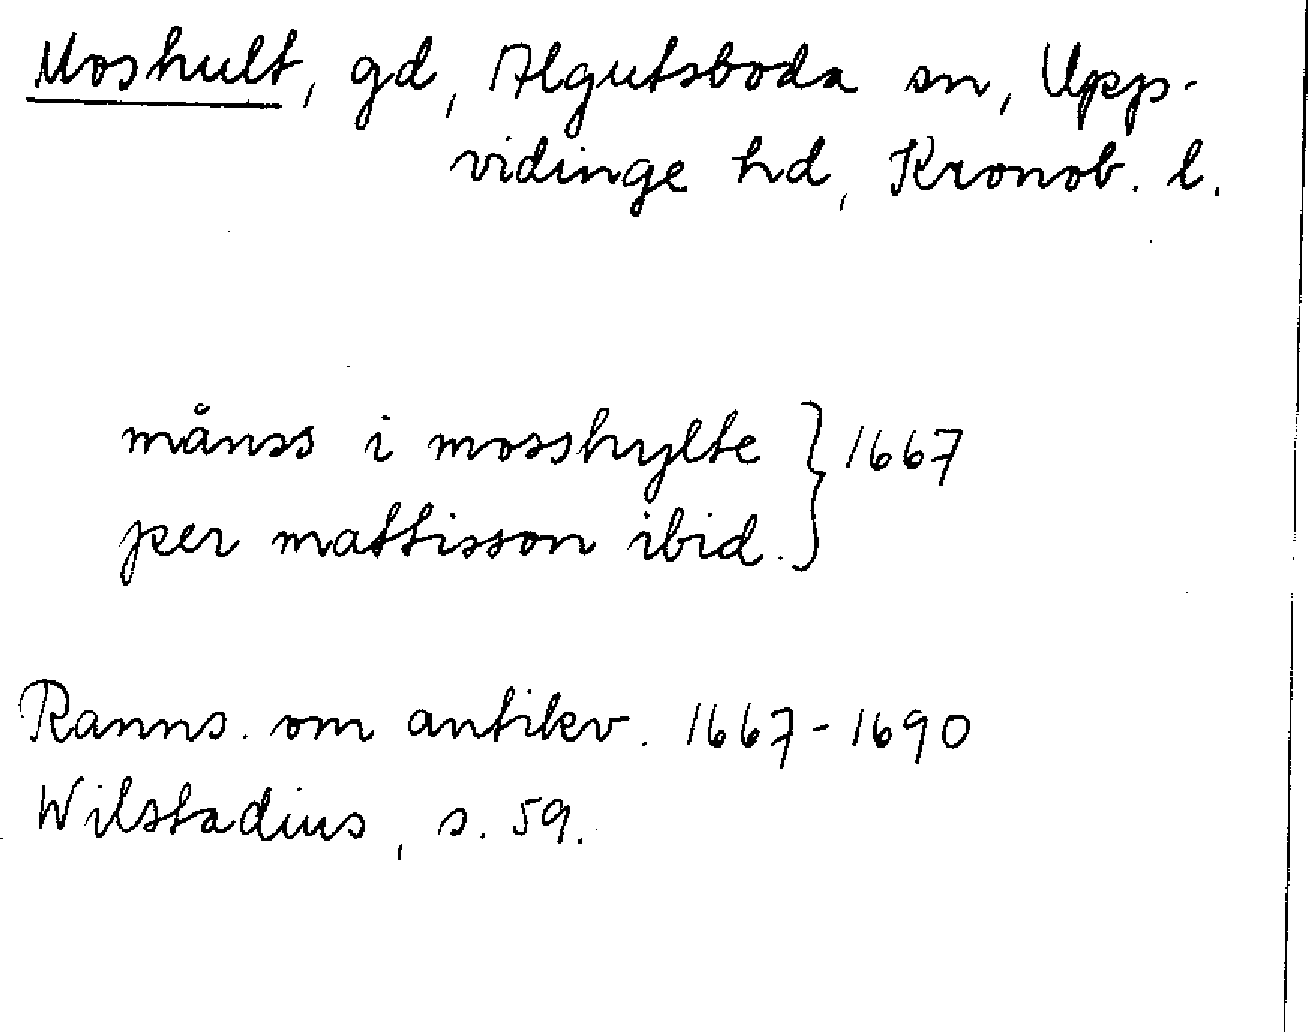 Moshult, gd, Algutsboda sn, Upp-
vidinge hd, Kronob. l.
månss i mosshylte } 1667
per mattisson ibid.
Ranns. om antikv. 1667-1690
Wilstadius, s. 59.